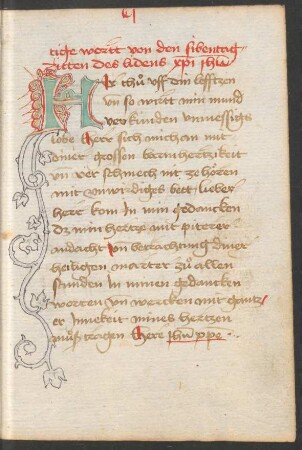 tige wertt von den sibentzag
zitten des lidens xpi jhu
Her thů uff din lefftzen
un so wirtt min mund
verkunden unmessigs
lobe Herr sich mich an mit
diner grossen bermhertzikeit
un ver schmech nit ze hören
mit vnwirdiges bett lieber
herr kom in min gedancken
dz min hertze mit pitrer
andacht vn betrachtung diner
heiligen marter zů allen
stunden in minen gedancken
worten vn wercken mit gantz
er Innekeit mines hertzen
muß tragen Here jhu xpe